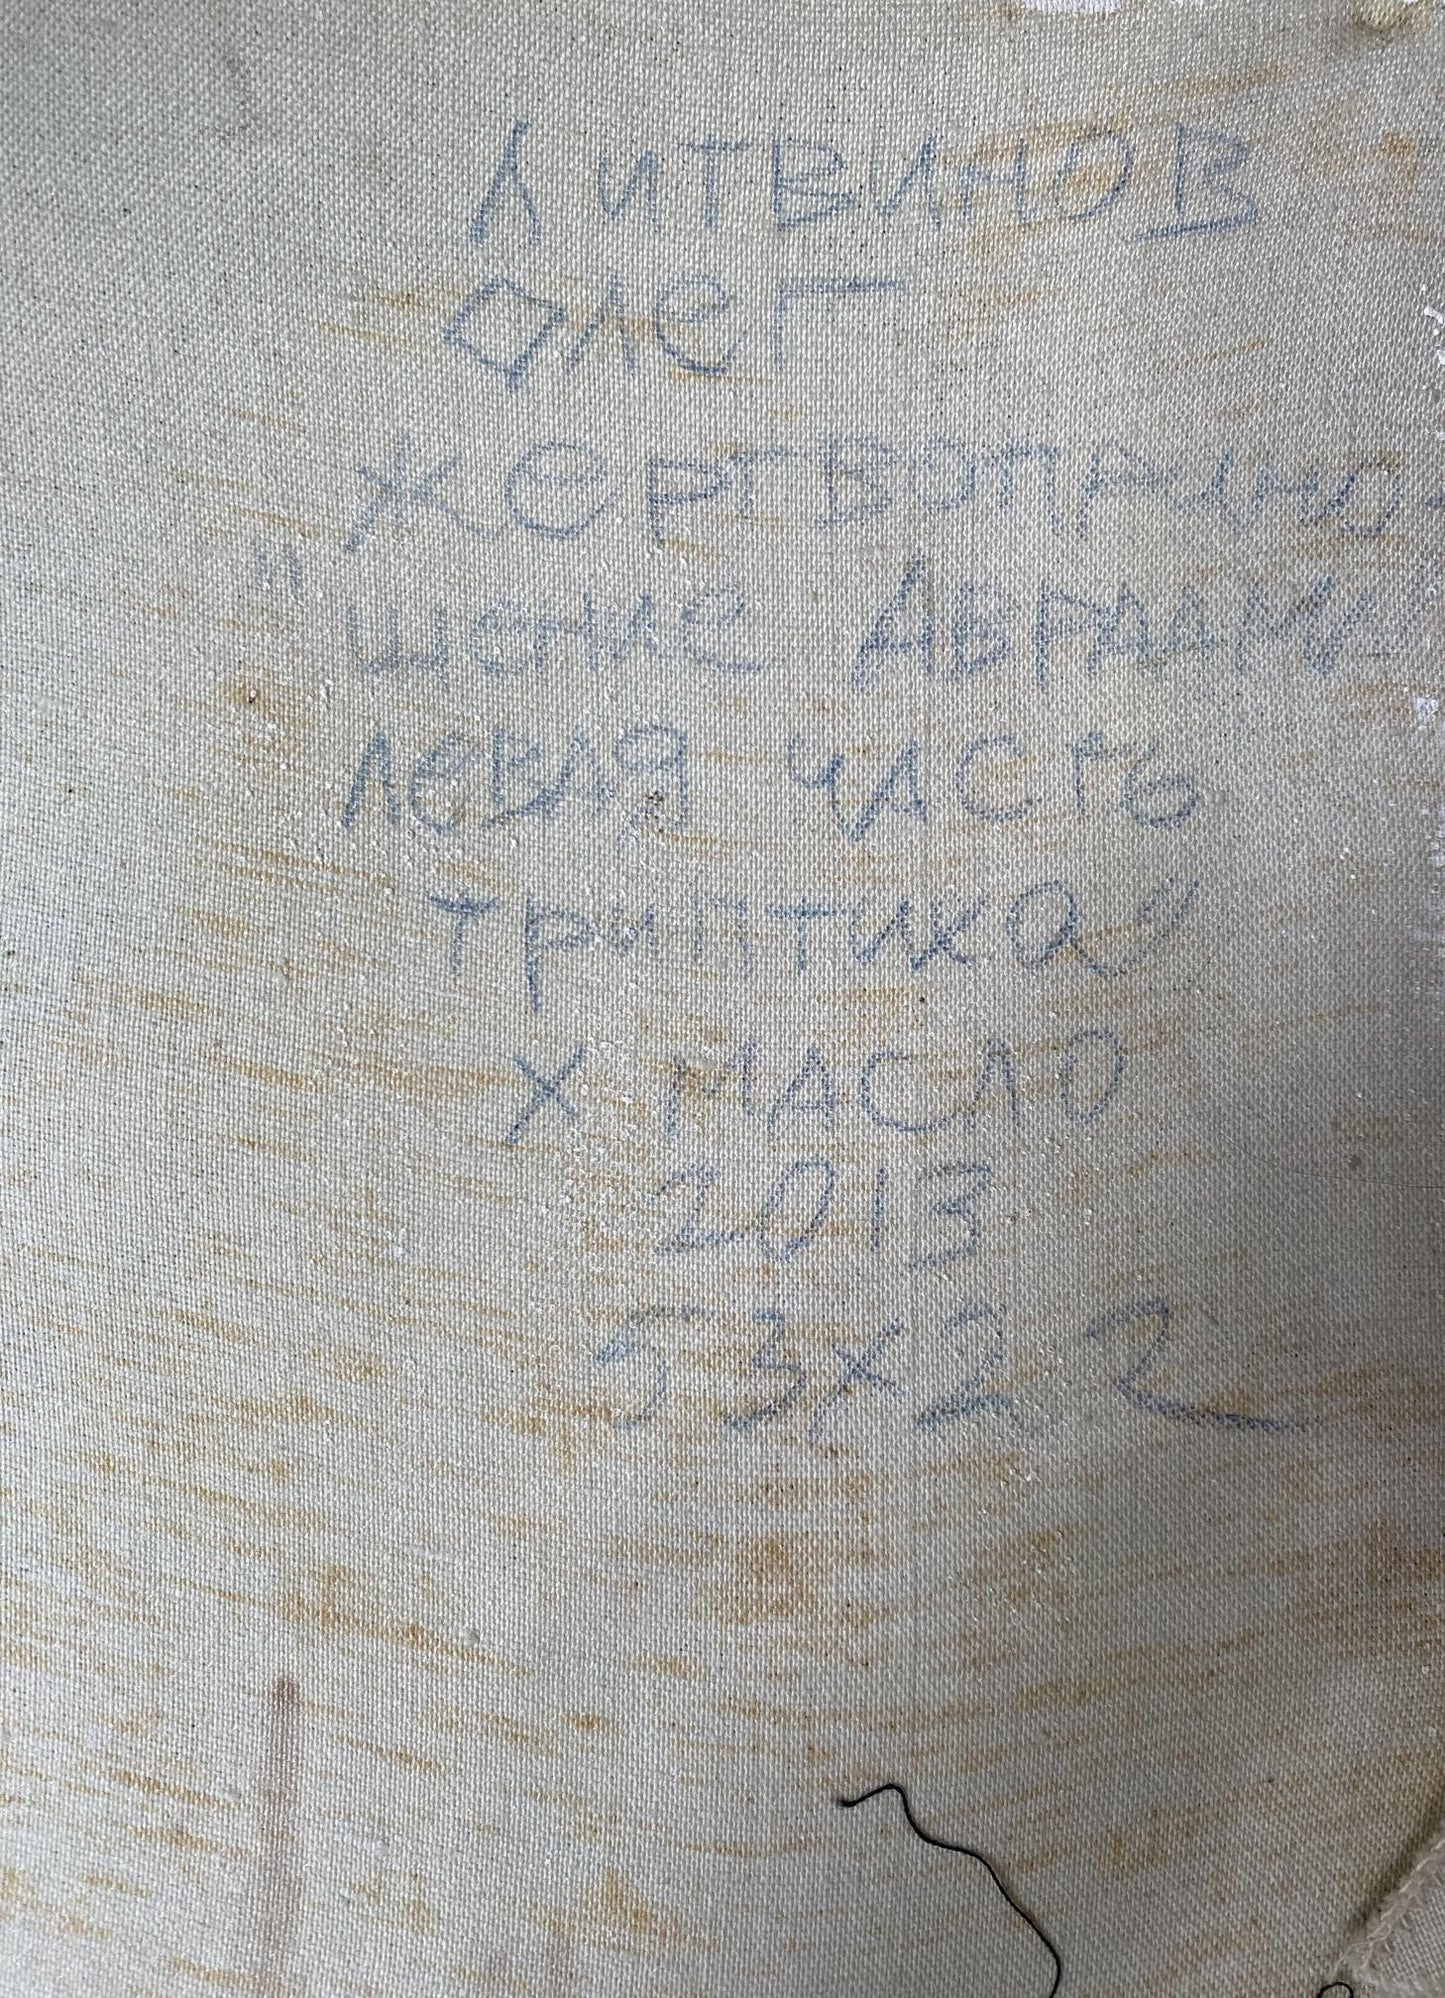 Литвинов
Олег
Жертвоприно-
"щение Авраама"
левая часть
триптиха"
х масло
2013
53х22